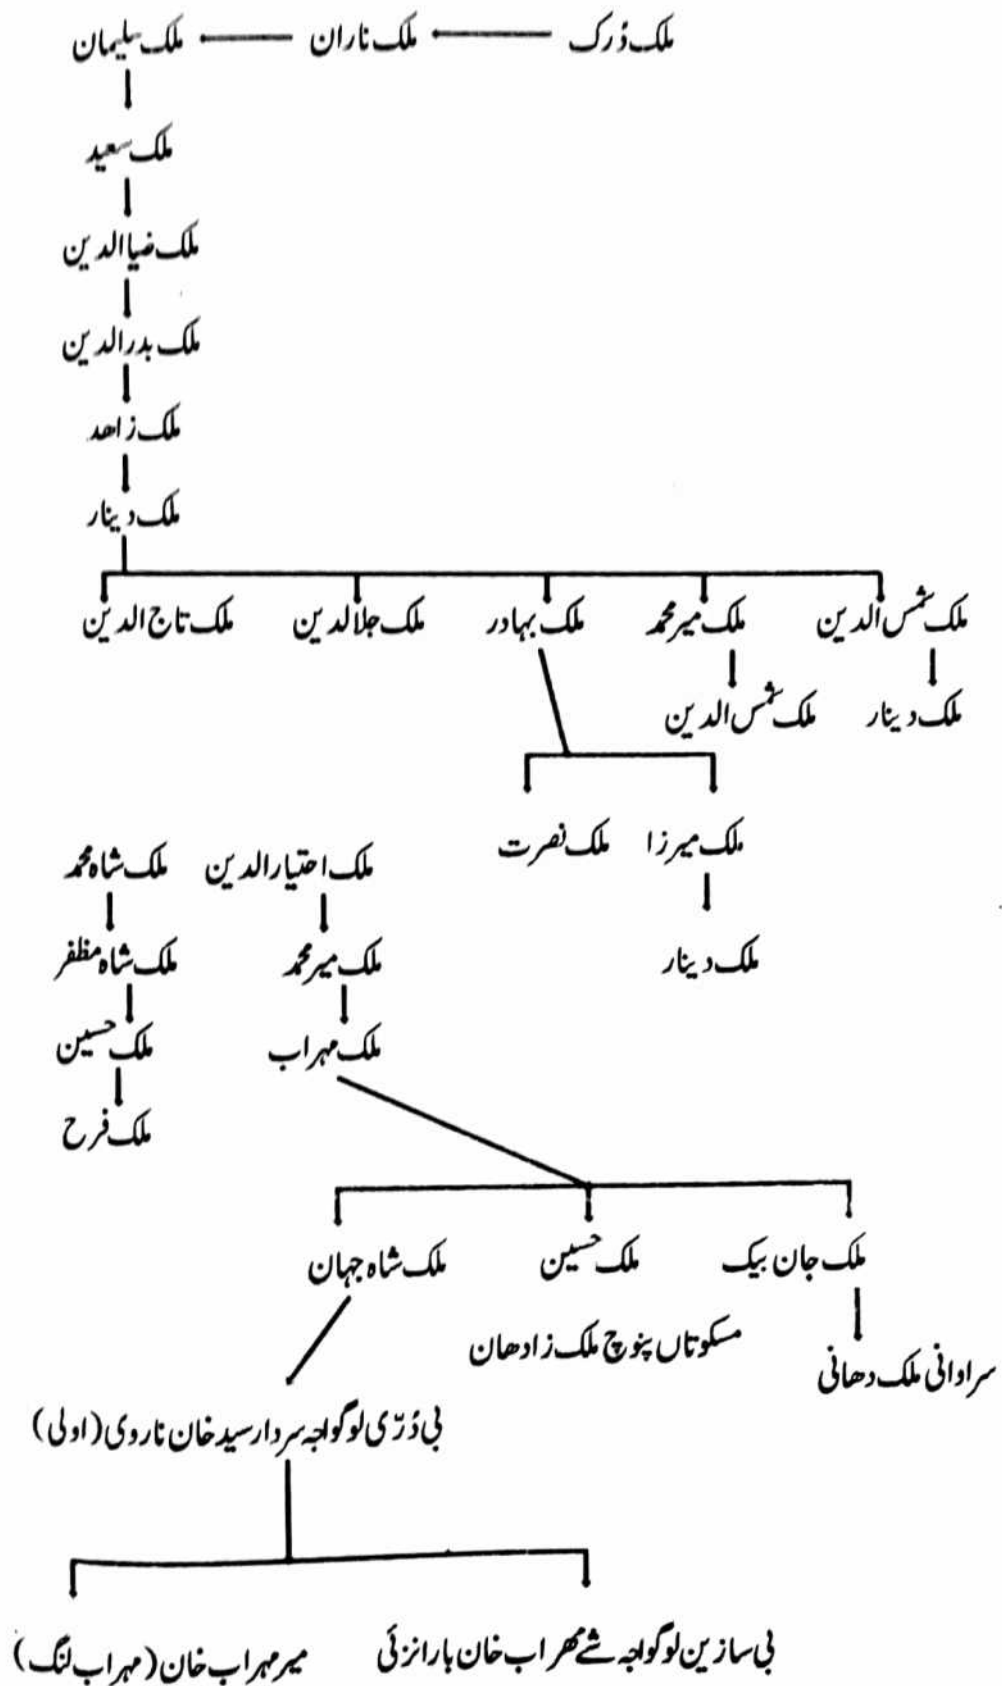 ملک دُرک ملک ناران ملک سلیمان
ملک سعید
ملک ضیاالدین
ملک بدرالدین
ملک زاھد
ملک دینار
ملک شمس الدین ملک میر محمد ملک بہادر ملک جلالدین ملک تاج الدین
ملک دینار ملک شمس الدین
ملک میرزا ملک نصرت
ملک احتیار الدین ملک شاہ محمد
ملک دینار ملک میر محمد ملک شاہ مظفر
ملک مہراب ملک حسین
ملک فرح
ملک جان بیک ملک حسین ملک شاہ جہان
سراوانی ملک دھانی مسکوتاں پنوچ ملک زادھان
بی دُرّی لوگواجہ سردار سید خان ناروی (اولی)
بی سازین لوگواجہ شے مھراب خان بارانزئی میر مہراب خان (مہراب لنگ)